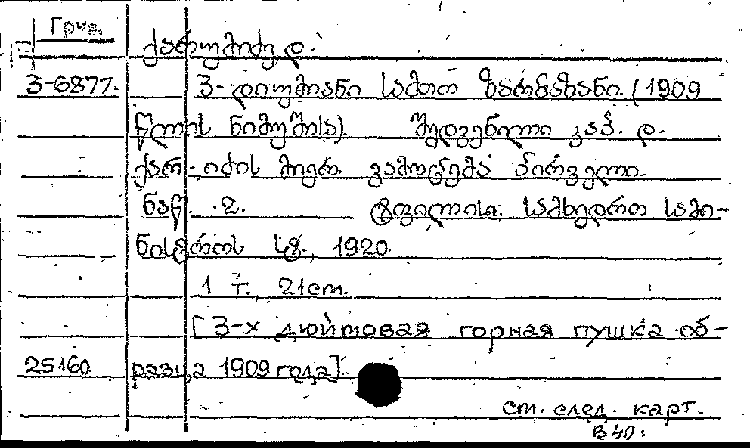 Груз.
ქართუმიძე დ.
3-6877. 3-დიუმიანი სამთო ზარბაზანი. (1909
წლის ნიმუშისა). შედგენილი კაპ. დ.
ქარ-იძის მიერ. გამოცემა პირველი
ნაწ. 2. ტფილისი. სამხედრო სამი-
ნისტროს სტ., 1920.
1 т., 21 cm.
[3-х дюймовая горная пушка об-
25160 разца 1909 года].
см. след. карт.